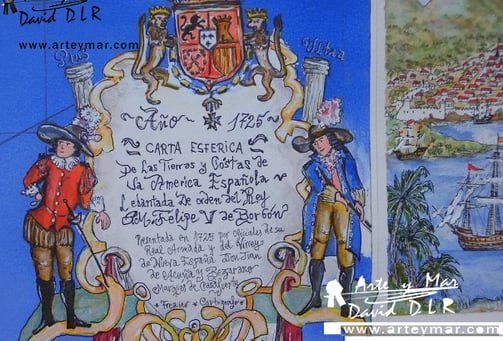 Arte y Mar
David D L R
www.arteymar.com
Plus
Ultra
~ Año ~ 1725 ~
CARTA ESFERICA
De Las Tierras y Costas de
la America Española
Lebantada De orden del Rey
S.M. Felipe V de Borbón
Presentada en 1725 por oficiales de su
Real Armada y del Virrey
de Nueva España Don Juan
de Acuña y Bezarano
Marques de Casafuerte
* Frezier * Cartografo *
Arte y Mar
David D L R
www.arteymar.com